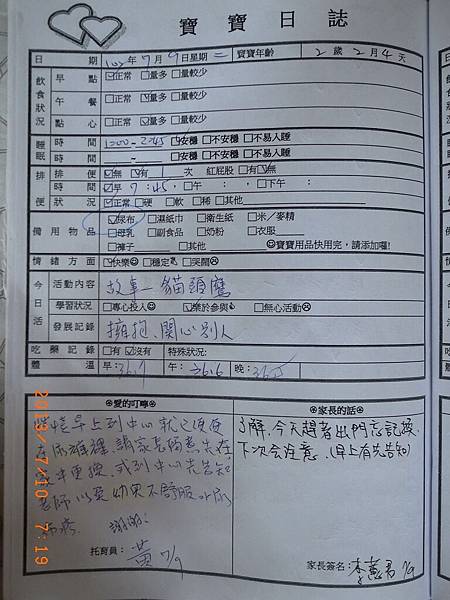 寶寶日誌
日期 102年7月9日星期二 寶寶年齡 2歲2月4天
飲食狀況 早點 ☑正常 □量多 □量較少
午餐 □正常 ☑量多 □量較少
點心 □正常 ☑量多 □量較少
睡眠 時間 1200-2:45 ☑安穩 □不安穩 □不易入睡
時間 - □安穩 □不安穩 □不易入睡
排便 排便 □無 ☑有 1 次 紅屁股 □有 ☑無
時間 ☑早 7:45, □午 : , □下午 :
狀況 ☑正常 □硬 □軟 □稀 □其他
備用物品 ☑尿布 □濕紙巾 □衛生紙 □米/麥精
□母乳 □副食品 □奶粉 □衣服
□褲子 □其他 ☺寶寶用品快用完,請添加喔!
情緒方面 ☑快樂☺ □穩定 □哭鬧☹
今日活 活動內容 故事—貓頭鷹
學習狀況 □專心投入☺ ☑樂於參與 □無心活動☹
發展記錄 擁抱、關心別人
吃藥記錄 □有 ☑沒有 特殊狀況:
體溫 早:36.7 午:36.6 晚:36.5
⊙愛的叮嚀⊙
早上到中心就已便便
在尿褲裡,請家長
家中更換,或到中心先告知
老師以免幼兒不舒服
謝謝!
托育員: 黃 7/9
⊙家長的話⊙
了解,今天趕著出門忘記換
下次會注意.(早上有先告知)
家長簽名: 李蕙君 7/9
2013/7/10 7:19